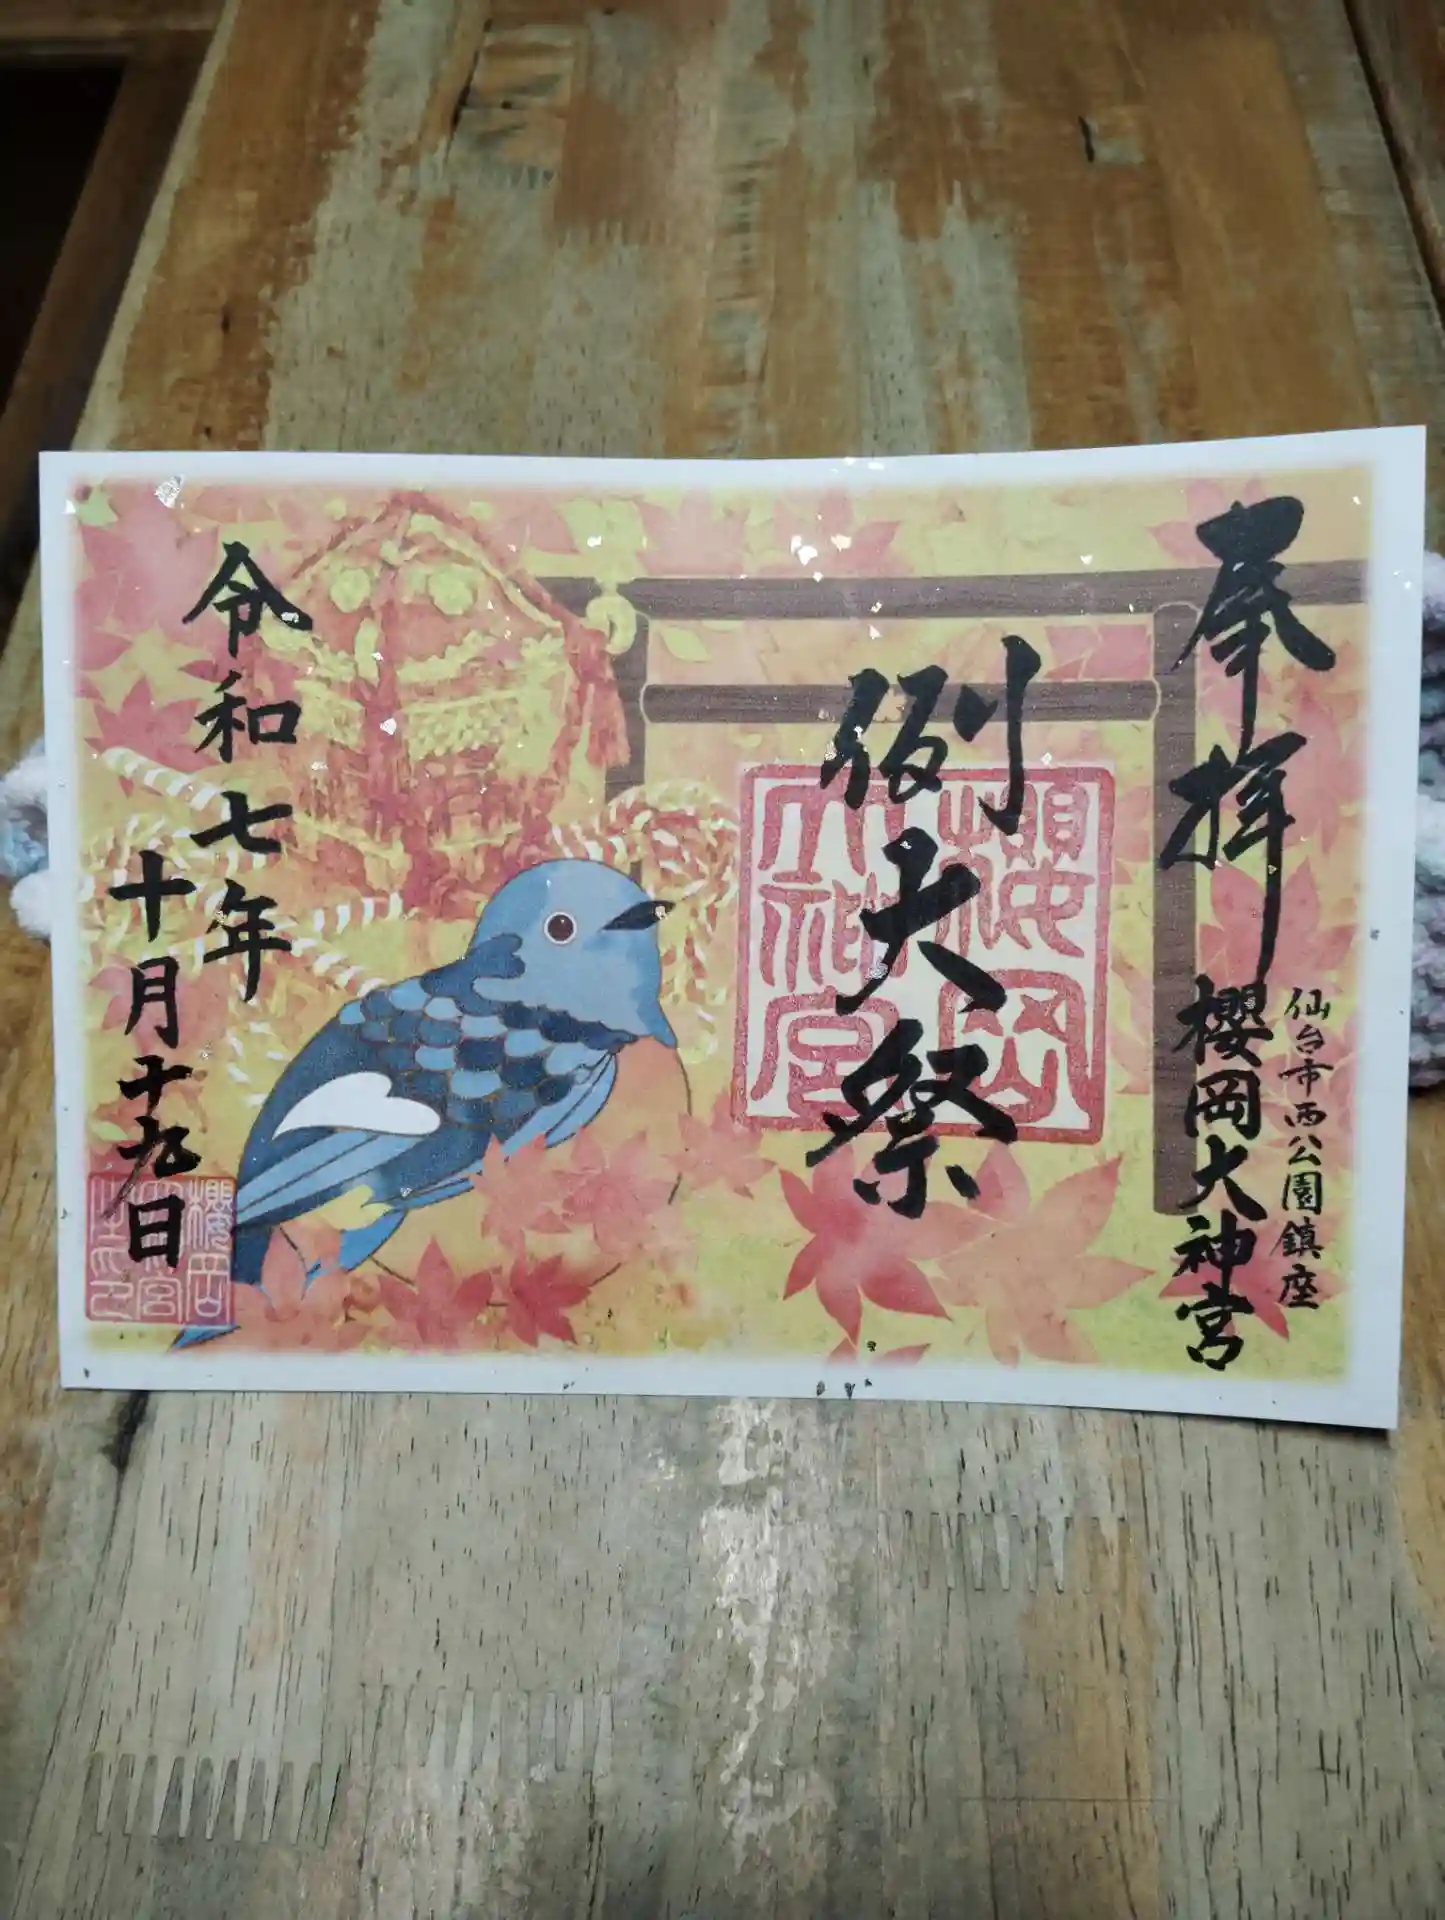 奉拝
仙台市西公園鎮座
櫻岡大神宮
例大祭
櫻岡
大神宮
令和七年
十月十九日
櫻岡